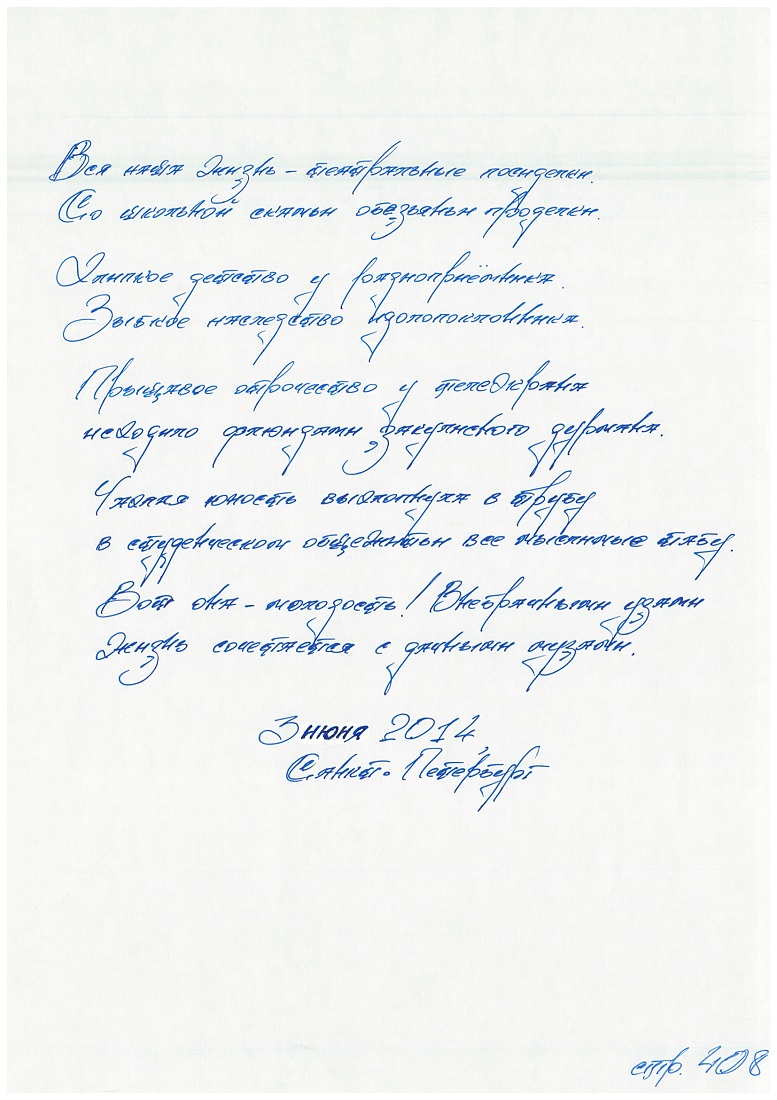 Вся наша жизнь – театральные посиделки.
Со школьной скамьи обезьяньи проделки.
Хлипкое детство у радиоприёмника.
Зыбкое наследство идолопоклонника.
Прыщавое отрочество у телеэкрана
исходило флюидами закулисного дурмана.
Чахлая юность вылопнула в трубу
в студенческом общежитьи все мыслимые табу.
Вот она – молодость! Внебрачными узами
жизнь сочетается с дачными музами.
3 июня 2014,
Санкт-Петербург
стр. 408